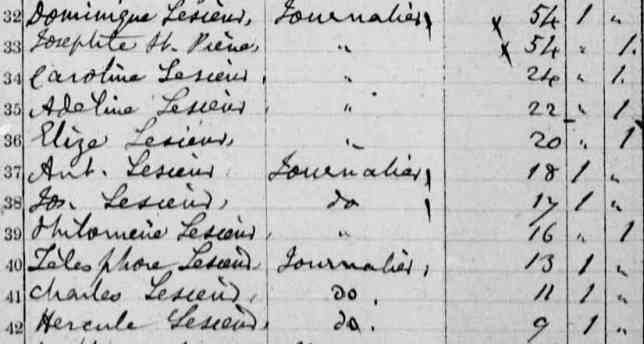 32 Dominique Lesieur, Journalier, x 54 1 "
33 Josephte St. Pierre, " x 54 " 1.
34 Caroline Lesieur, " 24 " 1.
35 Adeline Lesieur, " 22 " 1
36 Elize Lesieur, " 20 " 1
37 Ant. Lesieur, Journalier, 18 1 "
38 Jos. Lesieur, do 17 1 "
39 Philomène Lesieur, " 16 " 1
40 Télesphore Lesieur, Journalier, 13 1 "
41 Charles Lesieur, do, 11 1 "
42 Hercule Lesieur, do. 9 1 "